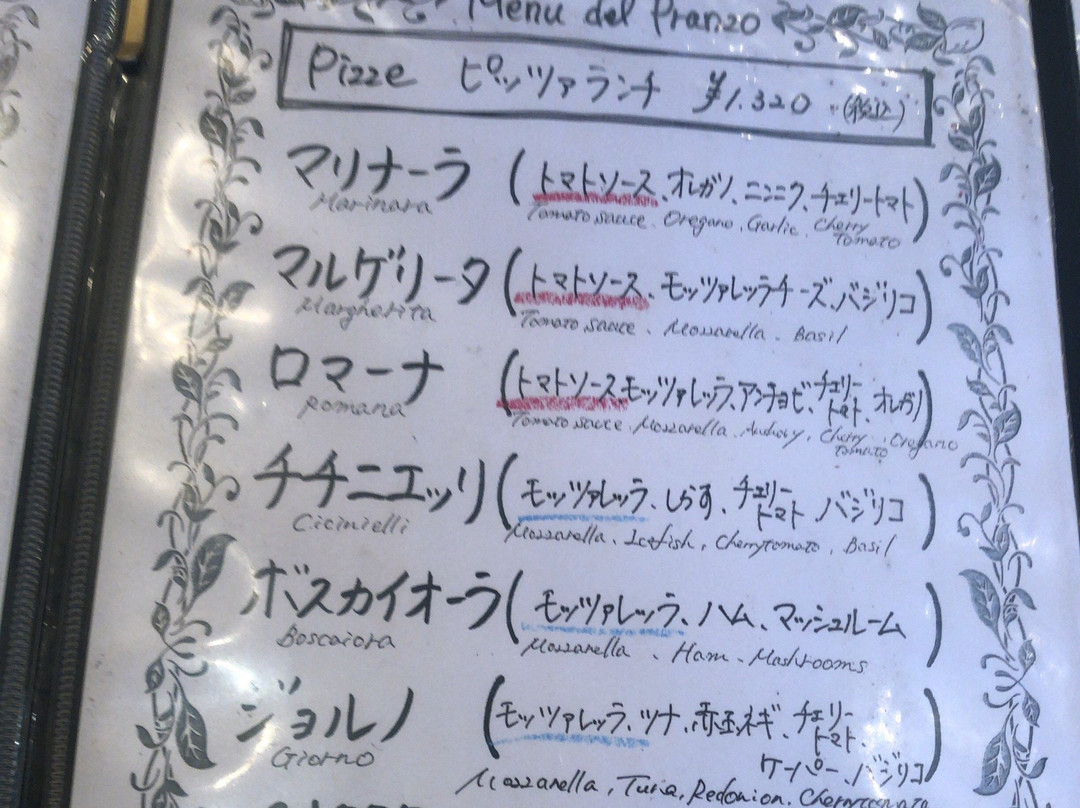 Menu del Pranzo
Pizze ピッツァランチ ¥1.320 (税込)
マリナーラ (トマトソース、オレガノ、ニンニク、チェリートマト)
Marinara Tomato sauce. Oregano. Garlic. Cherry Tomato
マルゲリータ (トマトソース、モッツァレッラチーズ、バジリコ)
Margherita Tomato sauce. Mozzarella. Basil
ロマーナ (トマトソース モッツァレッラ、アンチョビ、チェリートマト、オレガノ)
Romana Tomato sauce. Mozzarella. Cherry Tomato. Oregano
チチニエッリ (モッツァレッラ、しらす、チェリートマト、バジリコ)
Cicinielli Mozzarella. Icefish, Cherrytomato, Basil
ボスカイオーラ (モッツァレッラ、ハム、マッシュルーム
Boscaiora Mozzarella. Ham. Mashrooms
ジョルノ (モッツァレッラ、ツナ、赤玉ネギ、チェリートマト、
Giorno ケーパー、バジリコ)
Mozzarella, Tuna, Redonion. Cherrytomato